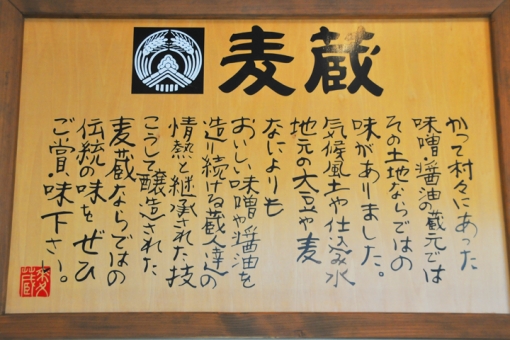 麦蔵
かつて村々にあった
味噌・醤油の蔵元では
その土地ならではの
味がありました。
気候風土や仕込み水
地元の大豆や麦
なによりも
おいしい味噌や醤油を
造り続ける蔵人達の
情熱と継承された技
こうして醸造された
麦蔵ならではの
伝統の味をぜひ
ご賞味下さい。
麦蔵